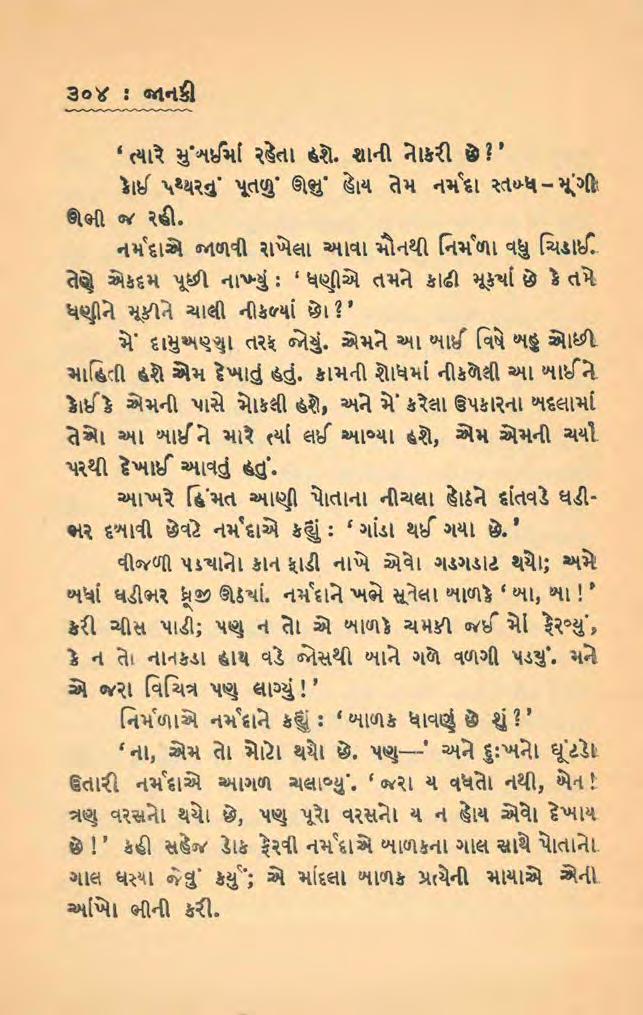 ૩૦૪ : જાનકી
‘ ત્યારે મુંબઈમાં રહેતા હશે. શાની નોકરી છે ? ’
કોઈ પથ્થરનું પૂતળું ઊભું હોય તેમ નર્મદા સ્તબ્ધ – મૂંગી
ઊભી જ રહી.
નર્મદાએ જાળવી રાખેલા આવા મૌનથી નિર્મળા વધુ ચિડાઈ.
તેણે એકદમ પૂછી નાખ્યું : ‘ ધણીએ તમને કાઢી મૂક્યાં છે કે તમે
ધણીને મૂકીને ચાલી નીકળ્યાં છો ? ’
મેં દામુઅણ્ણા તરફ જોયું. એમને આ બાઈ વિષે બહુ ઓછી
માહિતી હશે એમ દેખાતું હતું. કામની શોધમાં નીકળેલી આ બાઈને
કોઈકે એમની પાસે મોકલી હશે, અને મેં કરેલા ઉપકારના બદલામાં
તેઓ આ બાઈને મારે ત્યાં લઈ આવ્યા હશે, એમ એમની ચર્યા
પરથી દેખાઈ આવતું હતું.
આખરે હિંમત આણી પોતાના નીચલા હોઠને દાંતવડે ઘડી-
ભર દબાવી છેવટે નર્મદાએ કહ્યું : ‘ ગાંડા થઈ ગયા છે. ’
વીજળી પડયાનો કાન ફાડી નાખે એવો ગડગડાટ થયો; અમે
બધાં ઘડીભર ધ્રૂજી ઊઠયાં. નર્મદાને ખભે સૂતેલા બાળકે ‘ બા, બા ! ’
કરી ચીસ પાડી; પણ ન તો એ બાળકે ચમકી જઈ મોં ફેરવ્યું,
કે ન તો નાનકડા હાથ વડે જોસથી બાને ગળે વળગી પડયું. મને
એ જરા વિચિત્ર પણ લાગ્યું ! ’
નિર્મળાએ નર્મદાને કહ્યું : ‘ બાળક ધાવણું છે શું ? ’
‘ ના, એમ તો મોટો થયો છે. પણ—’ અને દુઃખનો ઘૂંટડો
ઉતારી નર્મદાએ આગળ ચલાવ્યું. ‘ જરા ય વધતો નથી, બેન !
ત્રણ વરસનો થયો છે, પણ પૂરો વરસનો ય ન હોય એવો દેખાય
છે ! ’ કહી સહેજ ડોક ફેરવી નર્મદાએ બાળકના ગાલ સાથે પોતાનો
ગાલ ઘસ્યા જેવું કર્યું; એ માંદલા બાળક પ્રત્યેની માયાએ એની
આંખો ભીની કરી.